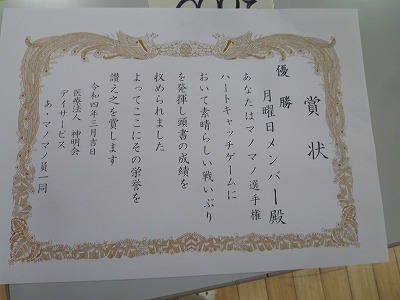 賞状
優勝
月曜日メンバー殿
あなたはマノマノ選手権
ハートキャッチゲームに
おいて素晴らしい戦いぶり
を発揮し頭書の成績を
収められました
よってここにその栄誉を
讃え之を賞します
令和四年三月吉日
医療法人 神明会
デイサービス
あ・マノマノ員一同